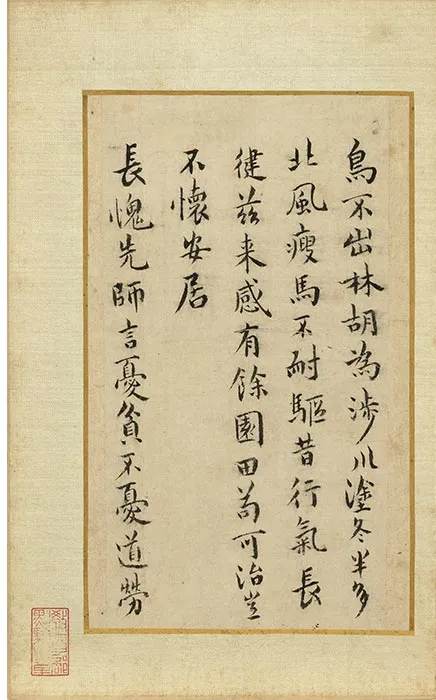 鳥不出林胡為涉川塗冬半多
北風瘦馬不耐驅昔行氣長
健茲来感有餘園田苟可治豈
不懷安居
長愧先師言憂貧不憂道勞